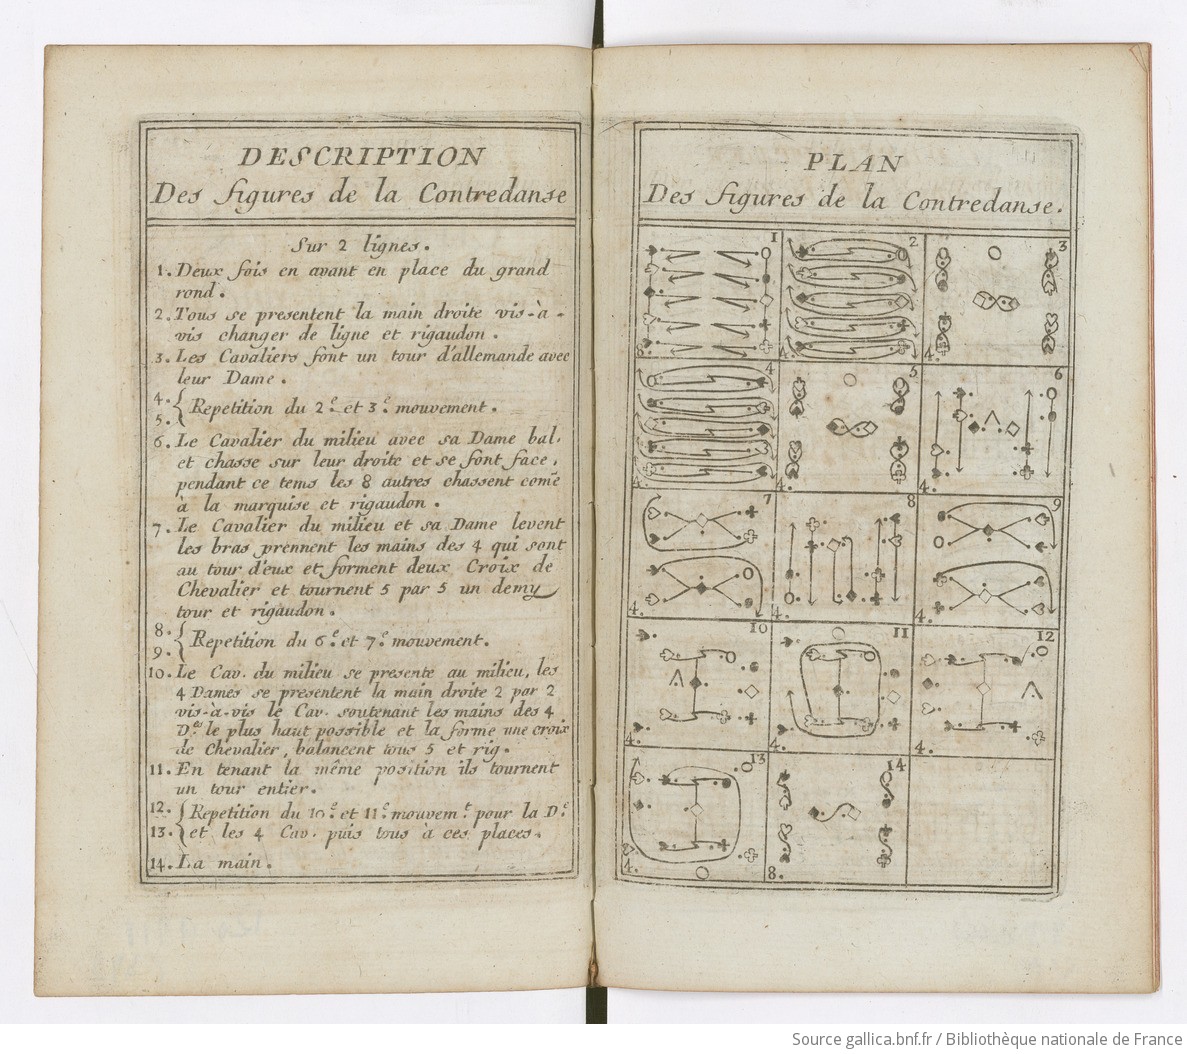 DESCRIPTION
Des figures de la Contredanse
Sur 2 lignes.
1. Deux fois en avant en place du grand
rond.
2. Tous se presentent la main droite vis-à-
vis changer de ligne et rigaudon.
3. Les Cavaliers font un tour d'allemande avec
leur Dame.
4.
5. { Repetition du 2.e et 3.e mouvement.
6. Le Cavalier du milieu avec sa Dame bal.
et chasse sur leur droite et se font face,
pendant ce tems les 8 autres chassent come
à la marquise et rigaudon.
7. Le Cavalier du milieu et sa Dame levent
les bras prennent les mains des 4 qui sont
au tour d'eux et forment deux Croix de
Chevalier et tournent 5 par 5 un demy
tour et rigaudon.
8.
9. { Repetition du 6.e et 7.e mouvement.
10. Le Cav. du milieu se presente au milieu, les
4 Dames se presentent la main droite 2 par 2
vis-à-vis le Cav. soutenant les mains des 4
D.es le plus haut possible et la forme une croix
de Chevalier, balancent tous 5 et rig.
11. En tenant la même position ils tournent
un tour entier.
12. { Repetition du 10.e et 11.e mouvem.t pour la D.e
13. et les 4 Cav. puis tous à ces places.
14. La main.
PLAN
Des figures de la Contredanse.
1 2 3
8. 4. 4.
4 5 6
4. 4. 4.
7 8 9
4. 4. 4.
10 11 12
4. 4. 4.
13 14
4. 8.
Source gallica.bnf.fr / Bibliothèque nationale de France